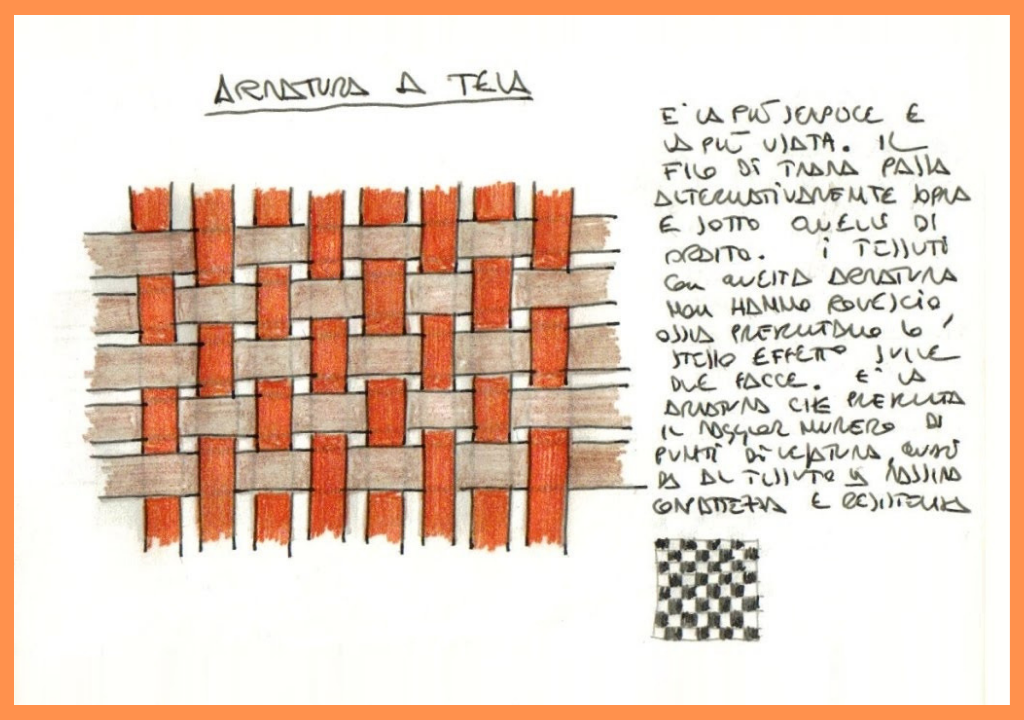 ARMATURA A TELA
E' LA PIÙ SEMPLICE E
LA PIÙ USATA. IL
FILO DI TRAMA PASSA
ALTERNATIVAMENTE SOPRA
E SOTTO QUELLO DI
ORDITO. I TESSUTI
CON QUESTA ARMATURA
NON HANNO ROVESCIO
OSSIA PRESENTANO LO
STESSO EFFETTO SULLE
DUE FACCE. E' LA
ARMATURA CHE PRESENTA
IL MAGGIOR NUMERO DI
PUNTI DI LEGATURA, QUINDI
DA AL TESSUTO LA MASSIMA
COMPATTEZZA E RESISTENZA